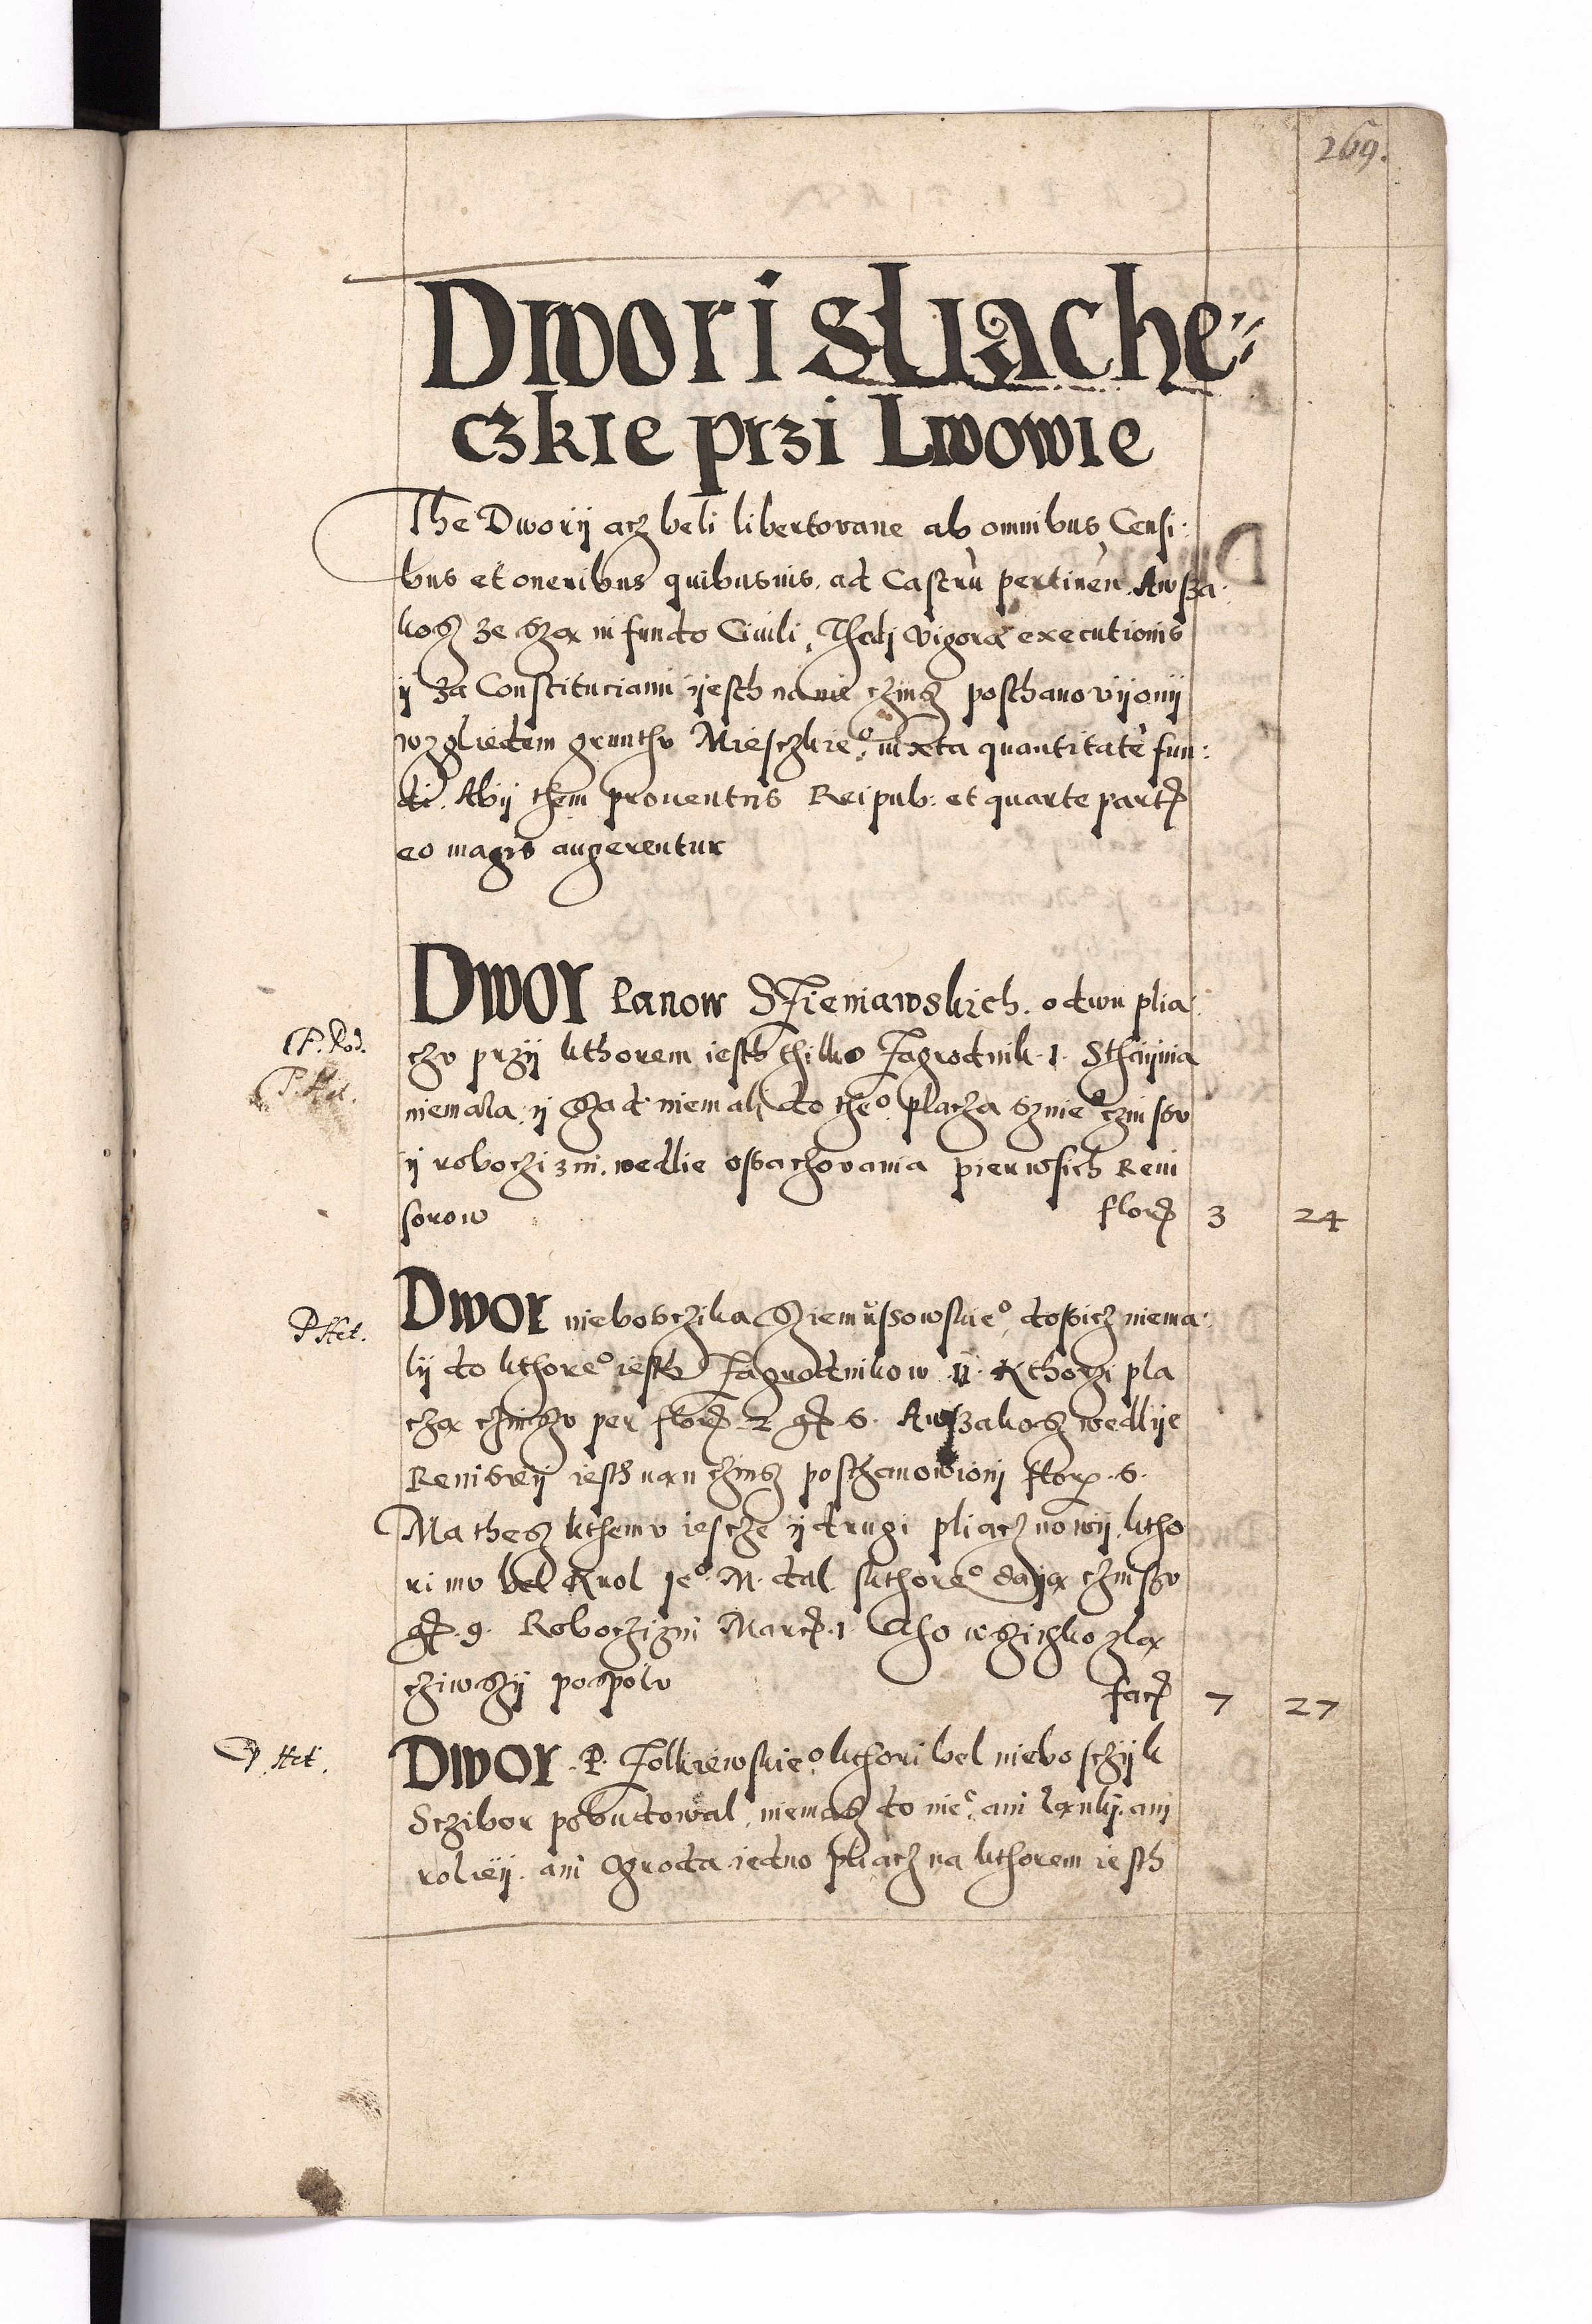 269.
Dwori sliache-
czkie przi Lwowie
The Dworij acz beli libertovane ab omnibus Censi:
bus et oneribus quibusuis. ad Castrũ pertinen̄. Awsza-
kosz ze szą in fundo Ciuili, Thedj vigorae executionis
ij za Constituciami ijesth na nie czinsz posthanovijonij
wzgliedem grunthv Miesczkieº. iuxta quantitatē fun:
di. Abij them prouentus Reipub: et quarte partꝭ
eo magis augerentur
Dwor Panow Szieniawskich. od dwu plia-
P. Pod.
czv przij kthorem iesth thilko Zagrodnik .1. Sthaijnia
P. Het.
niemala, ij Szad niemali, do theº placza sznieº czinsßv
ij roboczizni. wedlie oßaczovania pierwßich Reui
sorow florꝭ 3 24
P Het.
Dwor nieboßczika Sziemußowskieº, dosicz niema-
lij do kthoreº iesth Zagrodnikow .ij. Kthorzi pla
czą czinszv per florꝭ 2 gꝭ 6. Awszakosz wedlije
Reuisieij iesth nań czinsz posthanowionj flor. 6.
Mathesz kthemv iescze ij drugi pliacz nowij, ktho
ri mv bel Krol Jeº M. dal skthoreº daiją czinszv
gꝭ .9. Roboczizni Marcꝭ .1 Atho wszisthko zlą
cziwszij pospolv facꝭ 7 27
P. Het.
Dwor .P. Zolkiewskieº. kthori bel nieboszczijk
Sczibor pobudowal, niemasz do nieº, ani ląnkij. ani
rolieij. ani Ogroda iedno pliacz na kthorem iesth